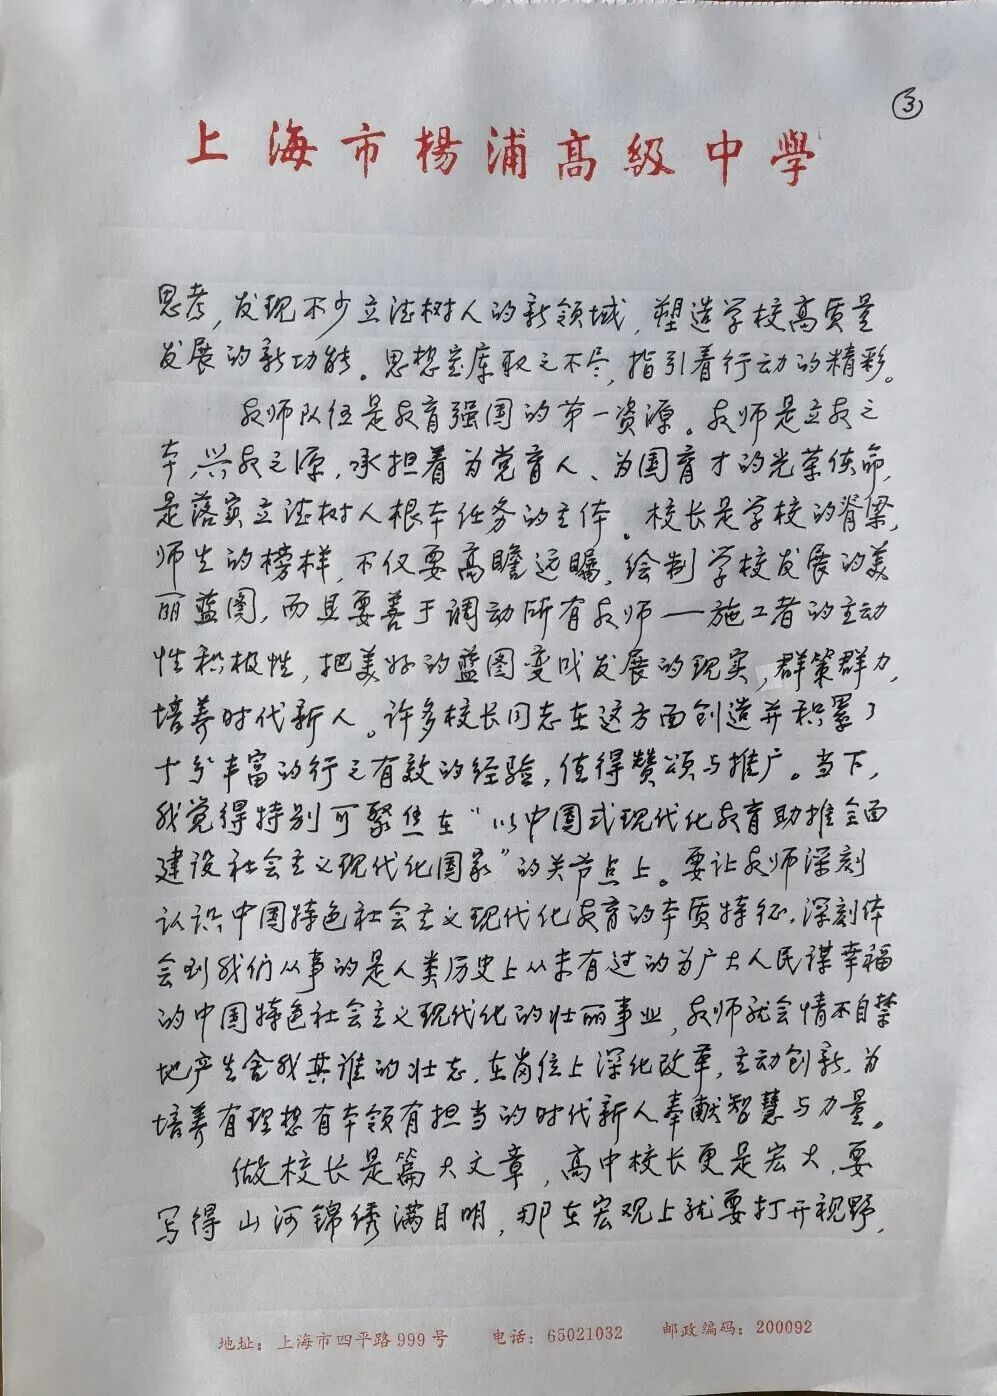 ③
上海市杨浦高级中学
思考，发现不少立德树人的新领域，塑造学校高质量
发展的新功能。思想宝库取之不尽，指引着行动的精彩。
教师队伍是教育强国的第一资源。教师是立教之
本，兴教之源，承担着为党育人、为国育才的光荣使命，
是落实立德树人根本任务的主体。校长是学校的脊梁，
师生的榜样，不仅要高瞻远瞩，绘制学校发展的美
丽蓝图，而且要善于调动所有教师——施工者的主动
性积极性，把美好的蓝图变成发展的现实，群策群力，
培养时代新人。许多校长同志在这方面创造并积累了
十分丰富的行之有效的经验，值得赞颂与推广。当下，
我觉得特别可聚焦在“以中国式现代化教育助推全面
建设社会主义现代化国家”的关节点上。要让教师深刻
认识中国特色社会主义现代化教育的本质特征，深刻体
会到我们从事的是人类历史上从未有过的为广大人民谋幸福
的中国特色社会主义现代化的壮丽事业，教师就会情不自禁
地产生舍我其谁的壮志，在岗位上深化改革，主动创新，为
培养有理想有本领有担当的时代新人奉献智慧与力量。
做校长是篇大文章，高中校长更是宏大，要
写得山河锦绣满目明，那在宏观上就要打开视野，
地址：上海市四平路999号 电话：65021032 邮政编码：200092